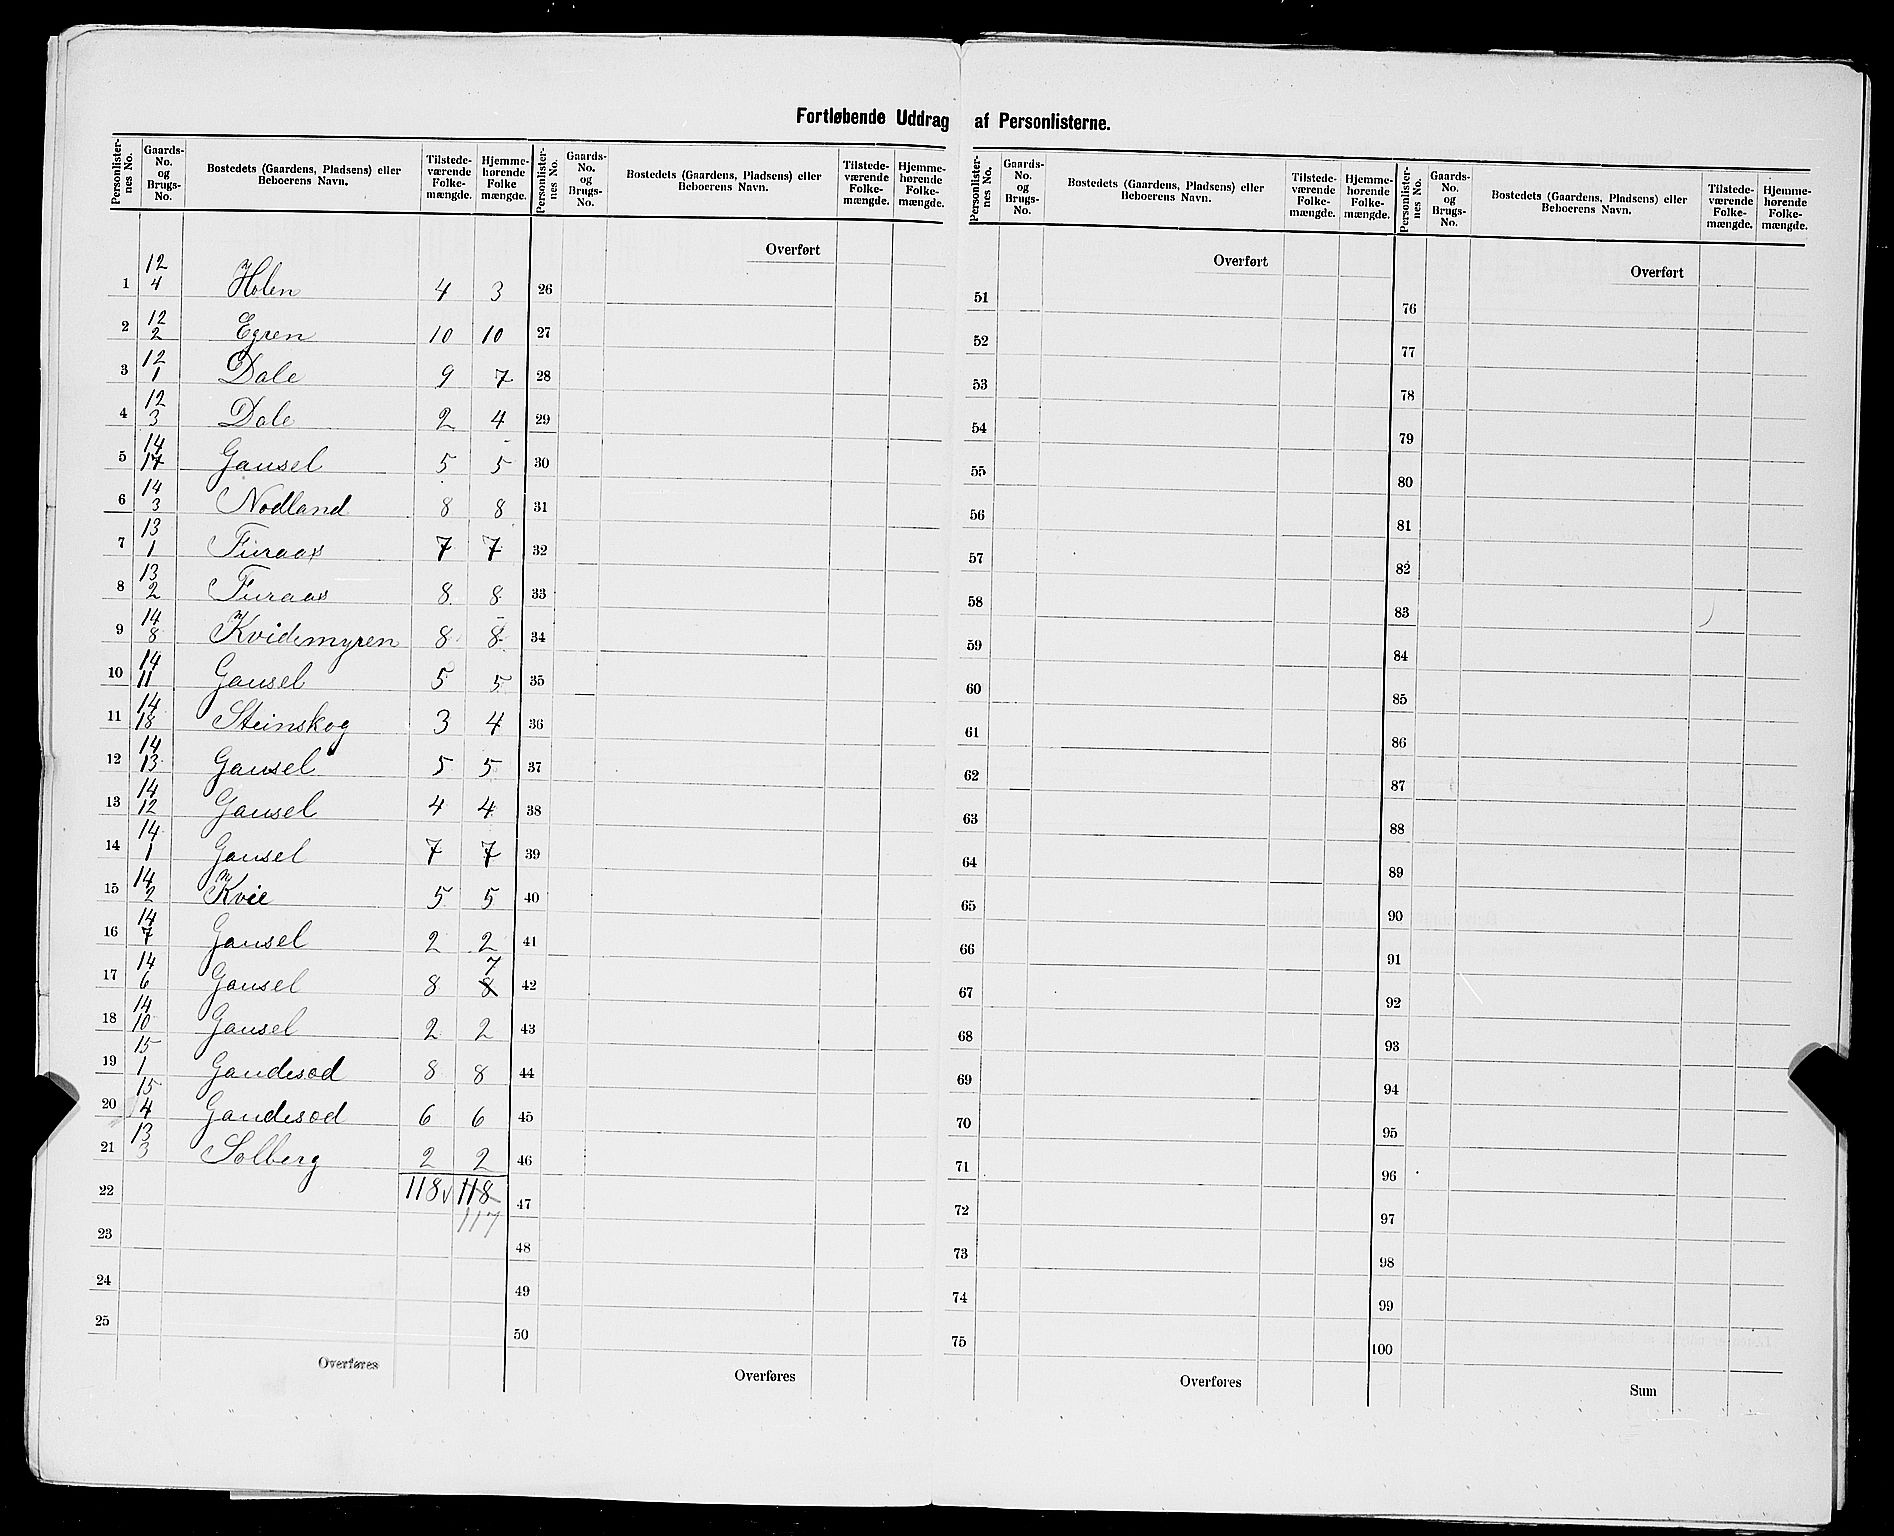 Fortløbende Uddrag af Personlisterne.
Personlister-nes No. | Gaards-No. og Brugs-No. | Bostedets (Gaardens, Pladsens) eller Beboerens Navn. | Tilstede-værende Folke-mængde. | Hjemme-hørende Folke mængde.
1 | 12/4 | Holen | 4 | 3
2 | 12/2 | Egren | 10 | 10
3 | 12/1 | Dale | 9 | 7
4 | 12/3 | Dale | 2 | 4
5 | 14/17 | Gausel | 5 | 5
6 | 14/3 | Nodland | 8 | 8
7 | 13/1 | Furaas | 7 | 7
8 | 13/2 | Furaas | 8 | 8
9 | 14/8 | Kvidemyren | 8 | 8
10 | 14/11 | Gausel | 5 | 5
11 | 14/18 | Steinskog | 3 | 4
12 | 14/13 | Gausel | 5 | 5
13 | 14/12 | Gausel | 4 | 4
14 | 14/1 | Gausel | 7 | 7
15 | 14/2 | Kvie | 5 | 5
16 | 14/7 | Gausel | 2 | 2
17 | 14/6 | Gausel | 8 | 8 7
18 | 14/10 | Gausel | 2 | 2
19 | 15/1 | Gandesød | 8 | 8
20 | 15/4 | Gandesød | 6 | 6
21 | 13/3 | Solberg | 2 | 2
22 | 118 | 118
117
23
24
25
Overføres
Personlister-nes No. | Gaards-No. og Brugs-No. | Bostedets (Gaardens, Pladsens) eller Beboerens Navn. | Tilstede-værende Folke-mængde. | Hjemme-hørende Folke-mængde.
Overført
26
27
28
29
30
31
32
33
34
35
36
37
38
39
40
41
42
43
44
45
46
47
48
49
50
Overføres
Personlister-nes No. | Gaards-No. og Brugs-No. | Bostedets (Gaardens, Pladsens) eller Beboerens Navn. | Tilstede-værende Folke-mængde. | Hjemme-hørende Folke-mængde.
Overført
51
52
53
54
55
56
57
58
59
60
61
62
63
64
65
66
67
68
69
70
71
72
73
74
75
Overføres
Personlister-nes No. | Gaards-No. og Brugs-No. | Bostedets (Gaardens, Pladsens) eller Beboerens Navn. | Tilstede-værende Folke-mængde. | Hjemme-hørende Folke-mængde.
Overført
76
77
78
79
80
81
82
83
84
85
86
87
88
89
90
91
92
93
94
95
96
97
98
99
100
Sum